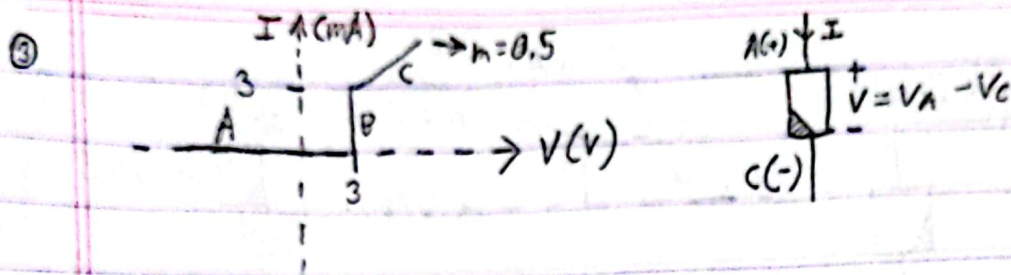 ③
I (mA)
→ m=0.5
3
C
A
B
V(V)
3
A(+)
I
+
V = VA - VC
-
C(-)